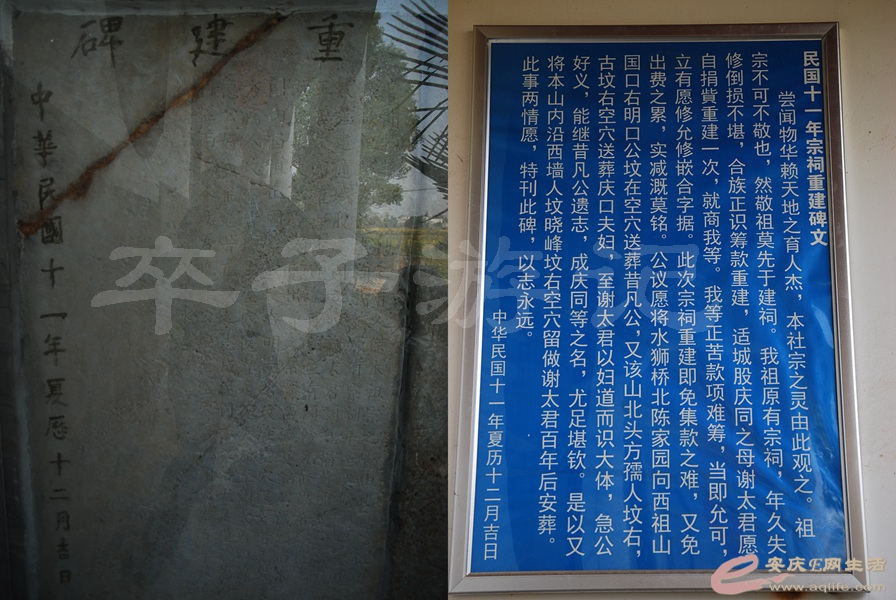 重建碑
中華民國十一年夏歷十二月吉日
民国十一年宗祠重建碑文
尝闻物华赖天地之育人杰，本社宗之灵由此观之。祖
宗不可不敬也，然敬祖莫先于建祠。我祖原有宗祠，年久失
修倒损不堪，合族正识筹款重建，适城股庆同之母谢太君愿
自捐赀重建一次，就商我等。我等正苦款项难筹，当即允可，
立有愿修允修嵌合字据。此次宗祠重建即免集款之难，又免
出费之累，实减溉莫铭。公议愿将水狮桥北陈家园向西祖山
国口右明口公坟在空穴送葬昔凡公，又该山北头方孺人坟右，
古坟右空穴送葬庆口夫妇，至谢太君以妇道而识大体，急公
好义，能继昔凡公遗志，成庆同等之名，尤足堪钦。是以又
将本山内沿西墙人坟晓峰坟右空穴留做谢太君百年后安葬。
此事两情愿，特刊此碑，以志永远。
中华民国十一年夏历十二月吉日
卒子游记
安庆E网生活
www.aqlife.com